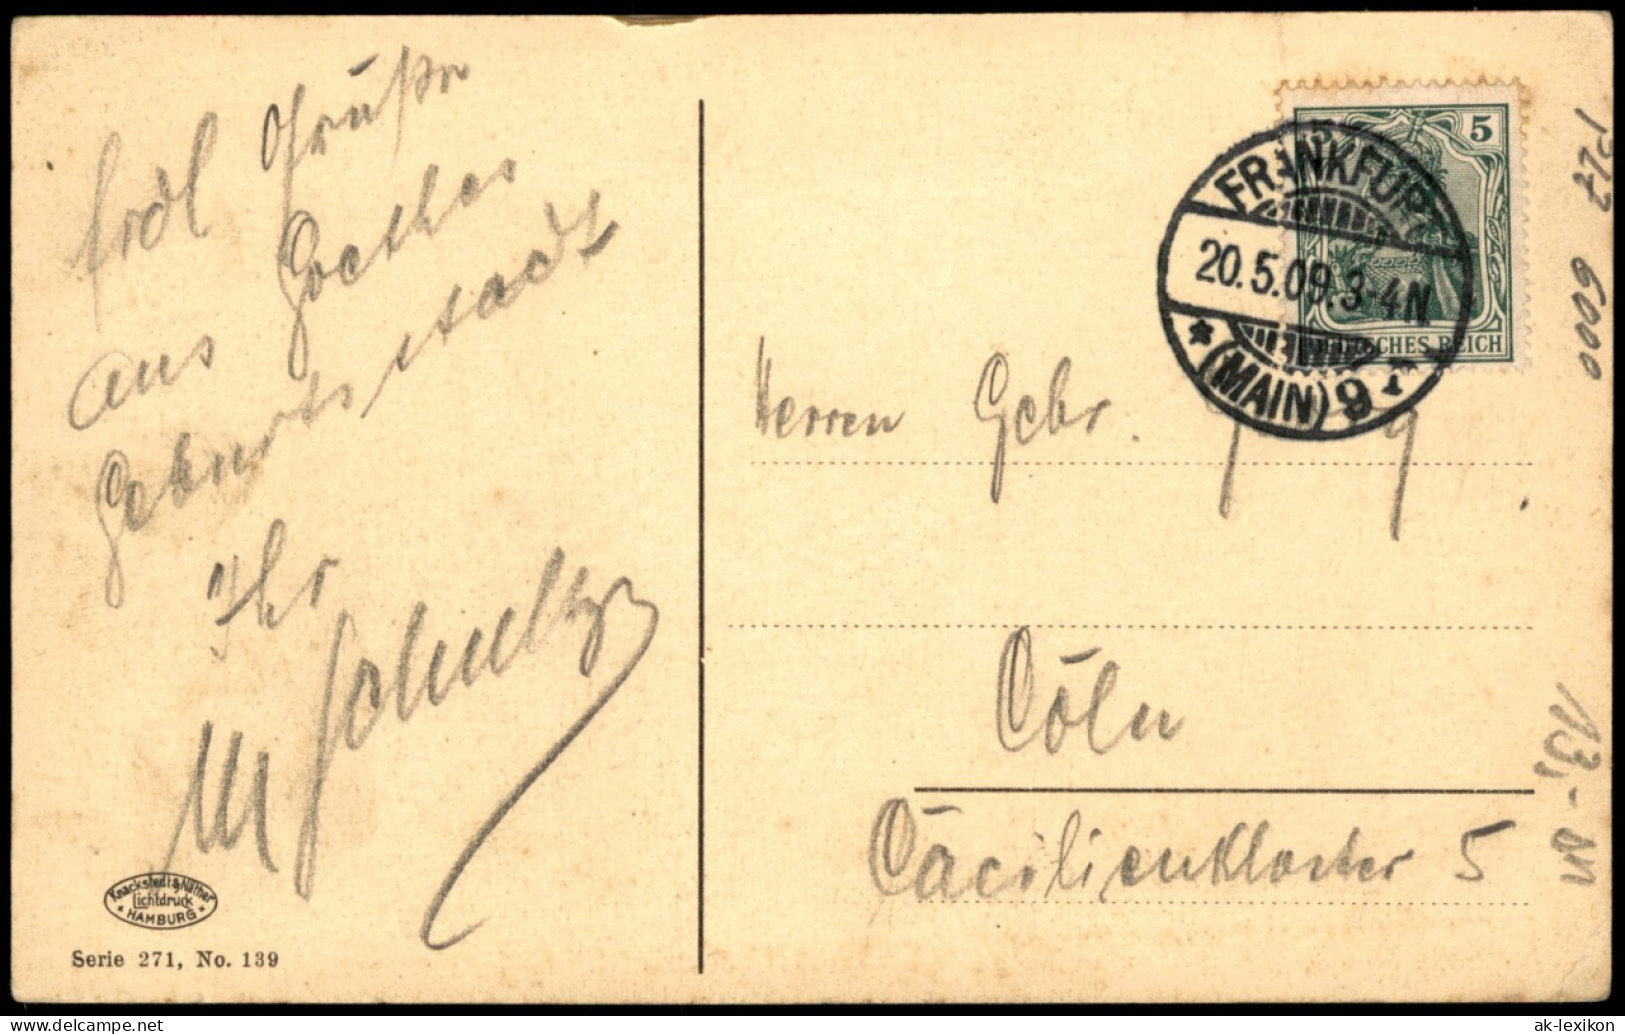 frdl Grüße
aus Goethes
Geburtsstadt
Ihr
M Schultz
Knackstedt & Näther
Lichtdruck
HAMBURG
Serie 271, No. 139
5
DEUTSCHES REICH
FRANKFURT
20.5.09.3-4N
(MAIN) 9
Herren Gebr.
Cöln
Cäcilienkloster 5
PLZ 6000
113,-
ak-lexikon